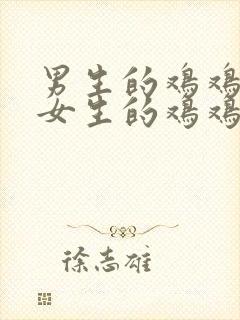 男生的鸡鸡
女生的鸡鸡
徐志雄